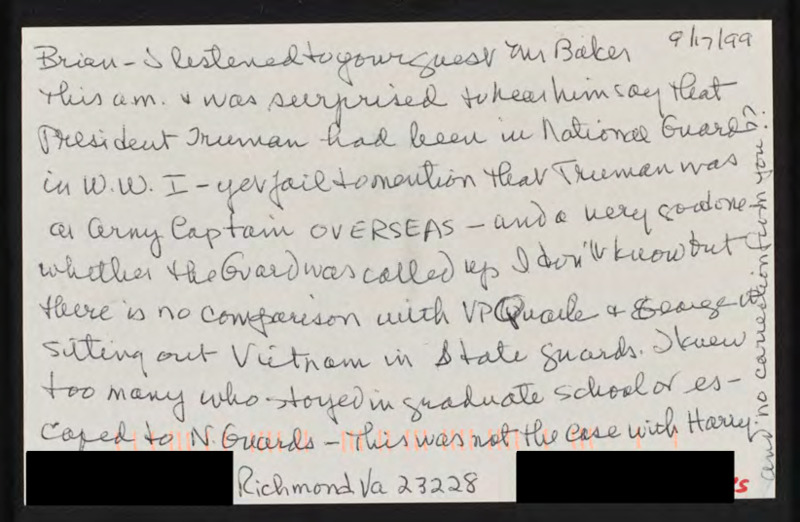 9/17/99
Brian - I listened to your guest Mr Baker
this a.m. & was surprised to hear him say that
President Truman had been in National Guard
in W.W. I - yet fail to mention that Truman was
an Army Captain OVERSEAS - and a very good one -
whether the Guard was called up I don't know but
there is no comparison with VP Quayle & George W
sitting out Vietnam in State guards. I knew
too many who stayed in graduate school or es-
caped to N. Guards - this was not the case with Harry.
and no correction from you?
Richmond Va 23228